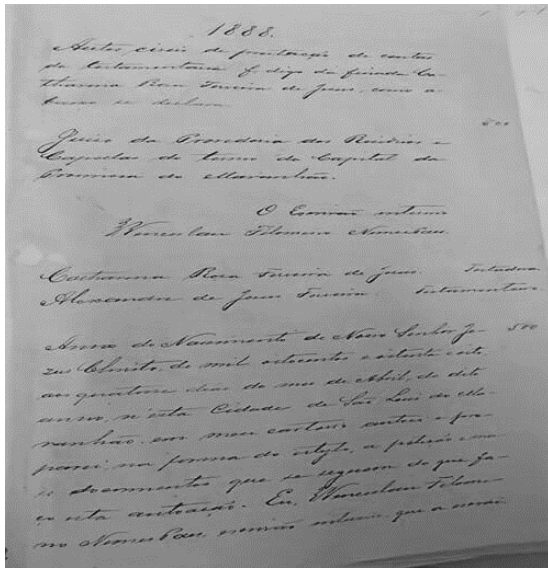 1888.
Autos civeis de prestação de contas
de testamentaria f. digo da finada Ca-
tharina Rosa Ferreira de Jesus, como a-
baixo se declara
500
Juizo da Provedoria dos Residuos e
Capellas do termo da Capital da
Provincia do Maranhão.
O Escrivão interino
Wenceslau Filomeno Nunes Paes
Catharina Rosa Ferreira de Jesus. Testadora
Alexandre de Jesus Ferreira. Testamenteiro.
Anno do Nascimento de Nosso Senhor Je- 500
zus Christo, de mil oitocentos e oitenta e oito,
aos quatorze dias do mez de Abril, do dito
anno, n'esta Cidade de São Luis do Ma-
ranhão, em meu cartorio autuei e pre-
parei, na forma do estylo, a petição e ma-
is documentos que se seguem do que fa-
ço esta autuação. Eu, Wenceslau Filome-
no Nunes Paes, escrivão interino, que a escrevi